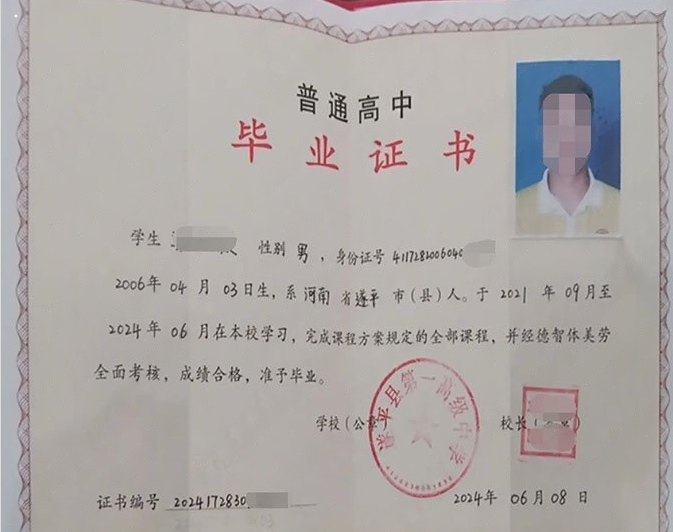 普通高中
毕业证书
学生 性别 男，身份证号 4117282006040
2006年 04 月 03日生，系河南省遂平市（县）人。于 2021 年 09月至
2024 年 06 月在本校学习，完成课程方案规定的全部课程，并经德智体美劳
全面考核，成绩合格，准予毕业。
学校（公章） 校长（
遂平县第一高级中学
证书编号 2024172830
2024年 06 月 08 日